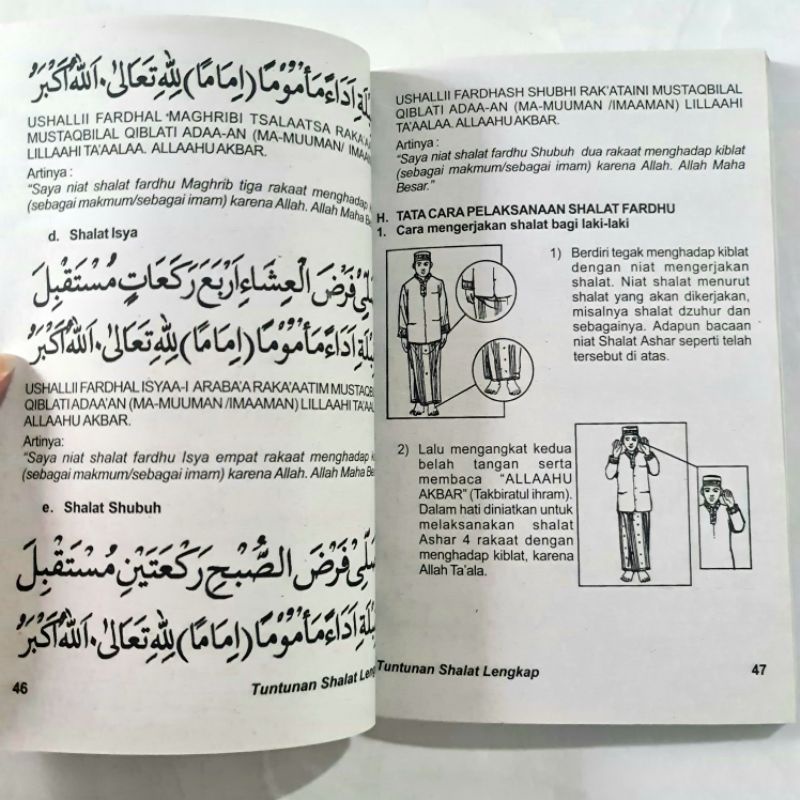 لَةِ اَدَاءً مَأْمُوْمًا (اِمَامًا) لِلّٰهِ تَعَالٰى. اَللّٰهُ اَكْبَرُ
USHALLII FARDHAL MAGHRIBI TSALAATSA RAKA'A
MUSTAQBILAL QIBLATI ADAA-AN (MA-MUUMAN/ IMAA
LILLAAHI TA'AALAA. ALLAAHU AKBAR.
Artinya :
"Saya niat shalat fardhu Maghrib tiga rakaat menghadap
(sebagai makmum/sebagai imam) karena Allah. Allah Maha
d. Shalat Isya
فَرْضَ الْعِشَاءِ اَرْبَعَ رَكَعَاتٍ مُسْتَقْبِلَ
اَدَاءً مَأْمُوْمًا (اِمَامًا) لِلّٰهِ تَعَالٰى. اَللّٰهُ اَكْبَرُ
USHALLII FARDHAL ISYAA-I ARABA'A RAKA'AATIM MUSTAQB
QIBLATI ADAA'AN (MA-MUUMAN /IMAAMAN) LILLAAHI TA'AA
ALLAAHU AKBAR.
Artinya:
"Saya niat shalat fardhu Isya empat rakaat menghadap
(sebagai makmum/sebagai imam) karena Allah. Allah Maha
e. Shalat Shubuh
فَرْضَ الصُّبْحِ رَكْعَتَيْنِ مُسْتَقْبِلَ
لَةِ اَدَاءً مَأْمُوْمًا (اِمَامًا) لِلّٰهِ تَعَالٰى. اَللّٰهُ اَكْبَرُ
46
Tuntunan Shalat Leng
USHALLII FARDHASH SHUBHI RAK'ATAINI MUSTAQBILAL
QIBLATI ADAA-AN (MA-MUUMAN /IMAAMAN) LILLAAHI
TA'AALAA. ALLAAHU AKBAR.
Artinya :
"Saya niat shalat fardhu Shubuh dua rakaat menghadap kiblat
(sebagai makmum/sebagai imam) karena Allah. Allah Maha
Besar."
H. TATA CARA PELAKSANAAN SHALAT FARDHU
1. Cara mengerjakan shalat bagi laki-laki
1) Berdiri tegak menghadap kiblat
dengan niat mengerjakan
shalat. Niat shalat menurut
shalat yang akan dikerjakan,
misalnya shalat dzuhur dan
sebagainya. Adapun bacaan
niat Shalat Ashar seperti telah
tersebut di atas.
2) Lalu mengangkat kedua
belah tangan serta
membaca "ALLAAHU
AKBAR" (Takbiratul ihram).
Dalam hati diniatkan untuk
melaksanakan shalat
Ashar 4 rakaat dengan
menghadap kiblat, karena
Allah Ta'ala.
Tuntunan Shalat Lengkap
47